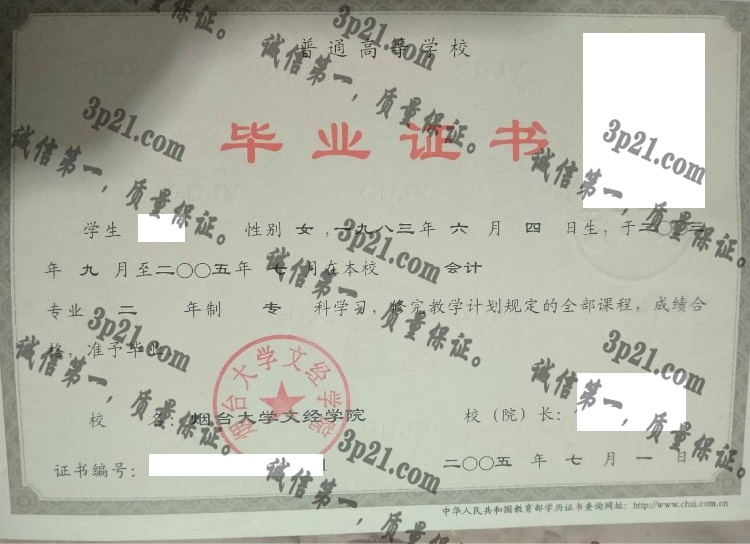 普通高等学校
毕业证书
学生 性别 女 ,一九八三年 六 月 四 日生, 于二〇〇三
年 九 月至二〇〇五年 七 月在本校 会计
专业 二 年制 专 科学习, 修完教学计划规定的全部课程, 成绩合
格, 准予毕业
校 名: 烟台大学文经学院
校（院）长:
证书编号:
二〇〇五 年 七 月 一 日
中华人民共和国教育部学历证书查询网址: http://www.chsi.com.cn
烟台大学文经学院
3p21.com
诚信第一，质量保证。
3p21.com
诚信第一，质量保证。
3p21.com
诚信第一，质量保证。
3p21.com
诚信第一，质量保证。
3p21.com
诚信第一，质量保证。
3p21.com
诚信第一，质量保证。
3p21.com
诚信第一，质量保证。